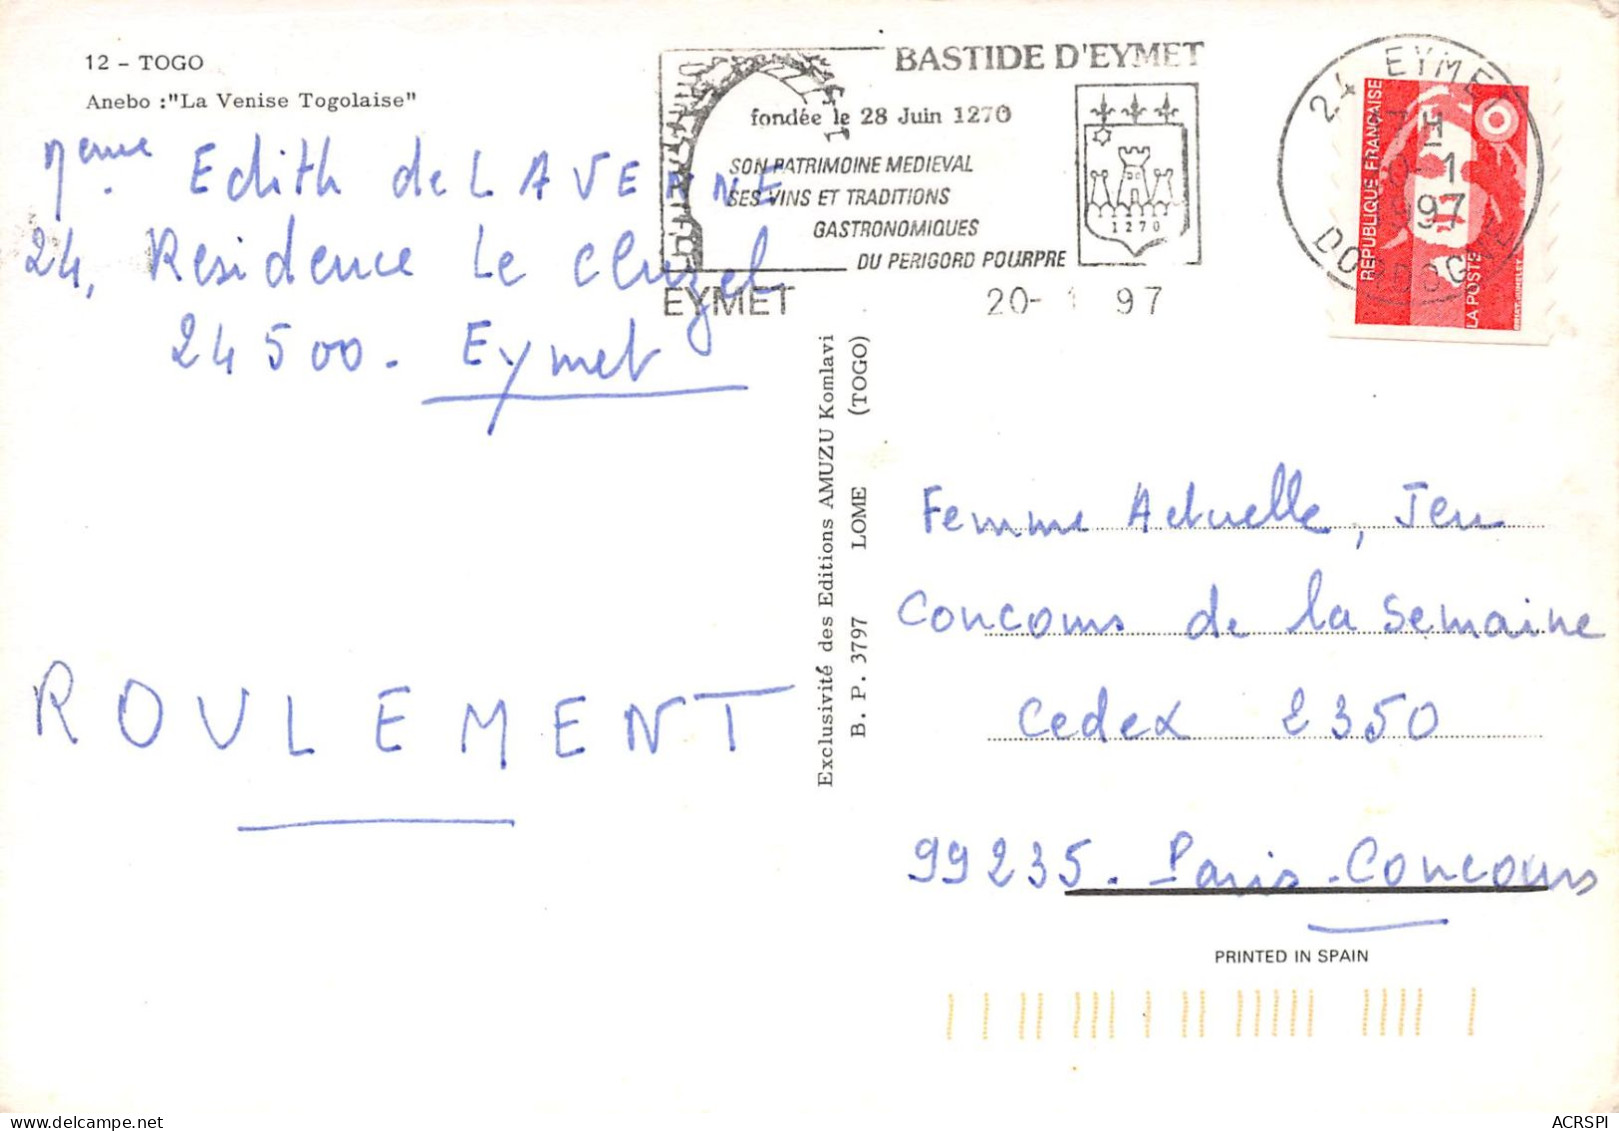 12 - TOGO
Anebo :"La Venise Togolaise"
Mme Edith de LAVERNE
24, Residence Le Cluzel
24500 - Eymet
ROULEMENT
BASTIDE D'EYMET
fondée le 28 Juin 1270
SON PATRIMOINE MEDIEVAL
SES VINS ET TRADITIONS
GASTRONOMIQUES
DU PERIGORD POURPRE
1270
EYMET 20-1 97
24 EYMET
H
20-1
1997
DORDOGNE
REPUBLIQUE FRANÇAISE
LA POSTE
Exclusivité des Editions AMUZU Komlavi
B. P. 3797 LOME (TOGO)
Femme Actuelle, Jeu
Concours de la Semaine
Cedex 2350
99235. Paris - Concours
PRINTED IN SPAIN
ACRSPI